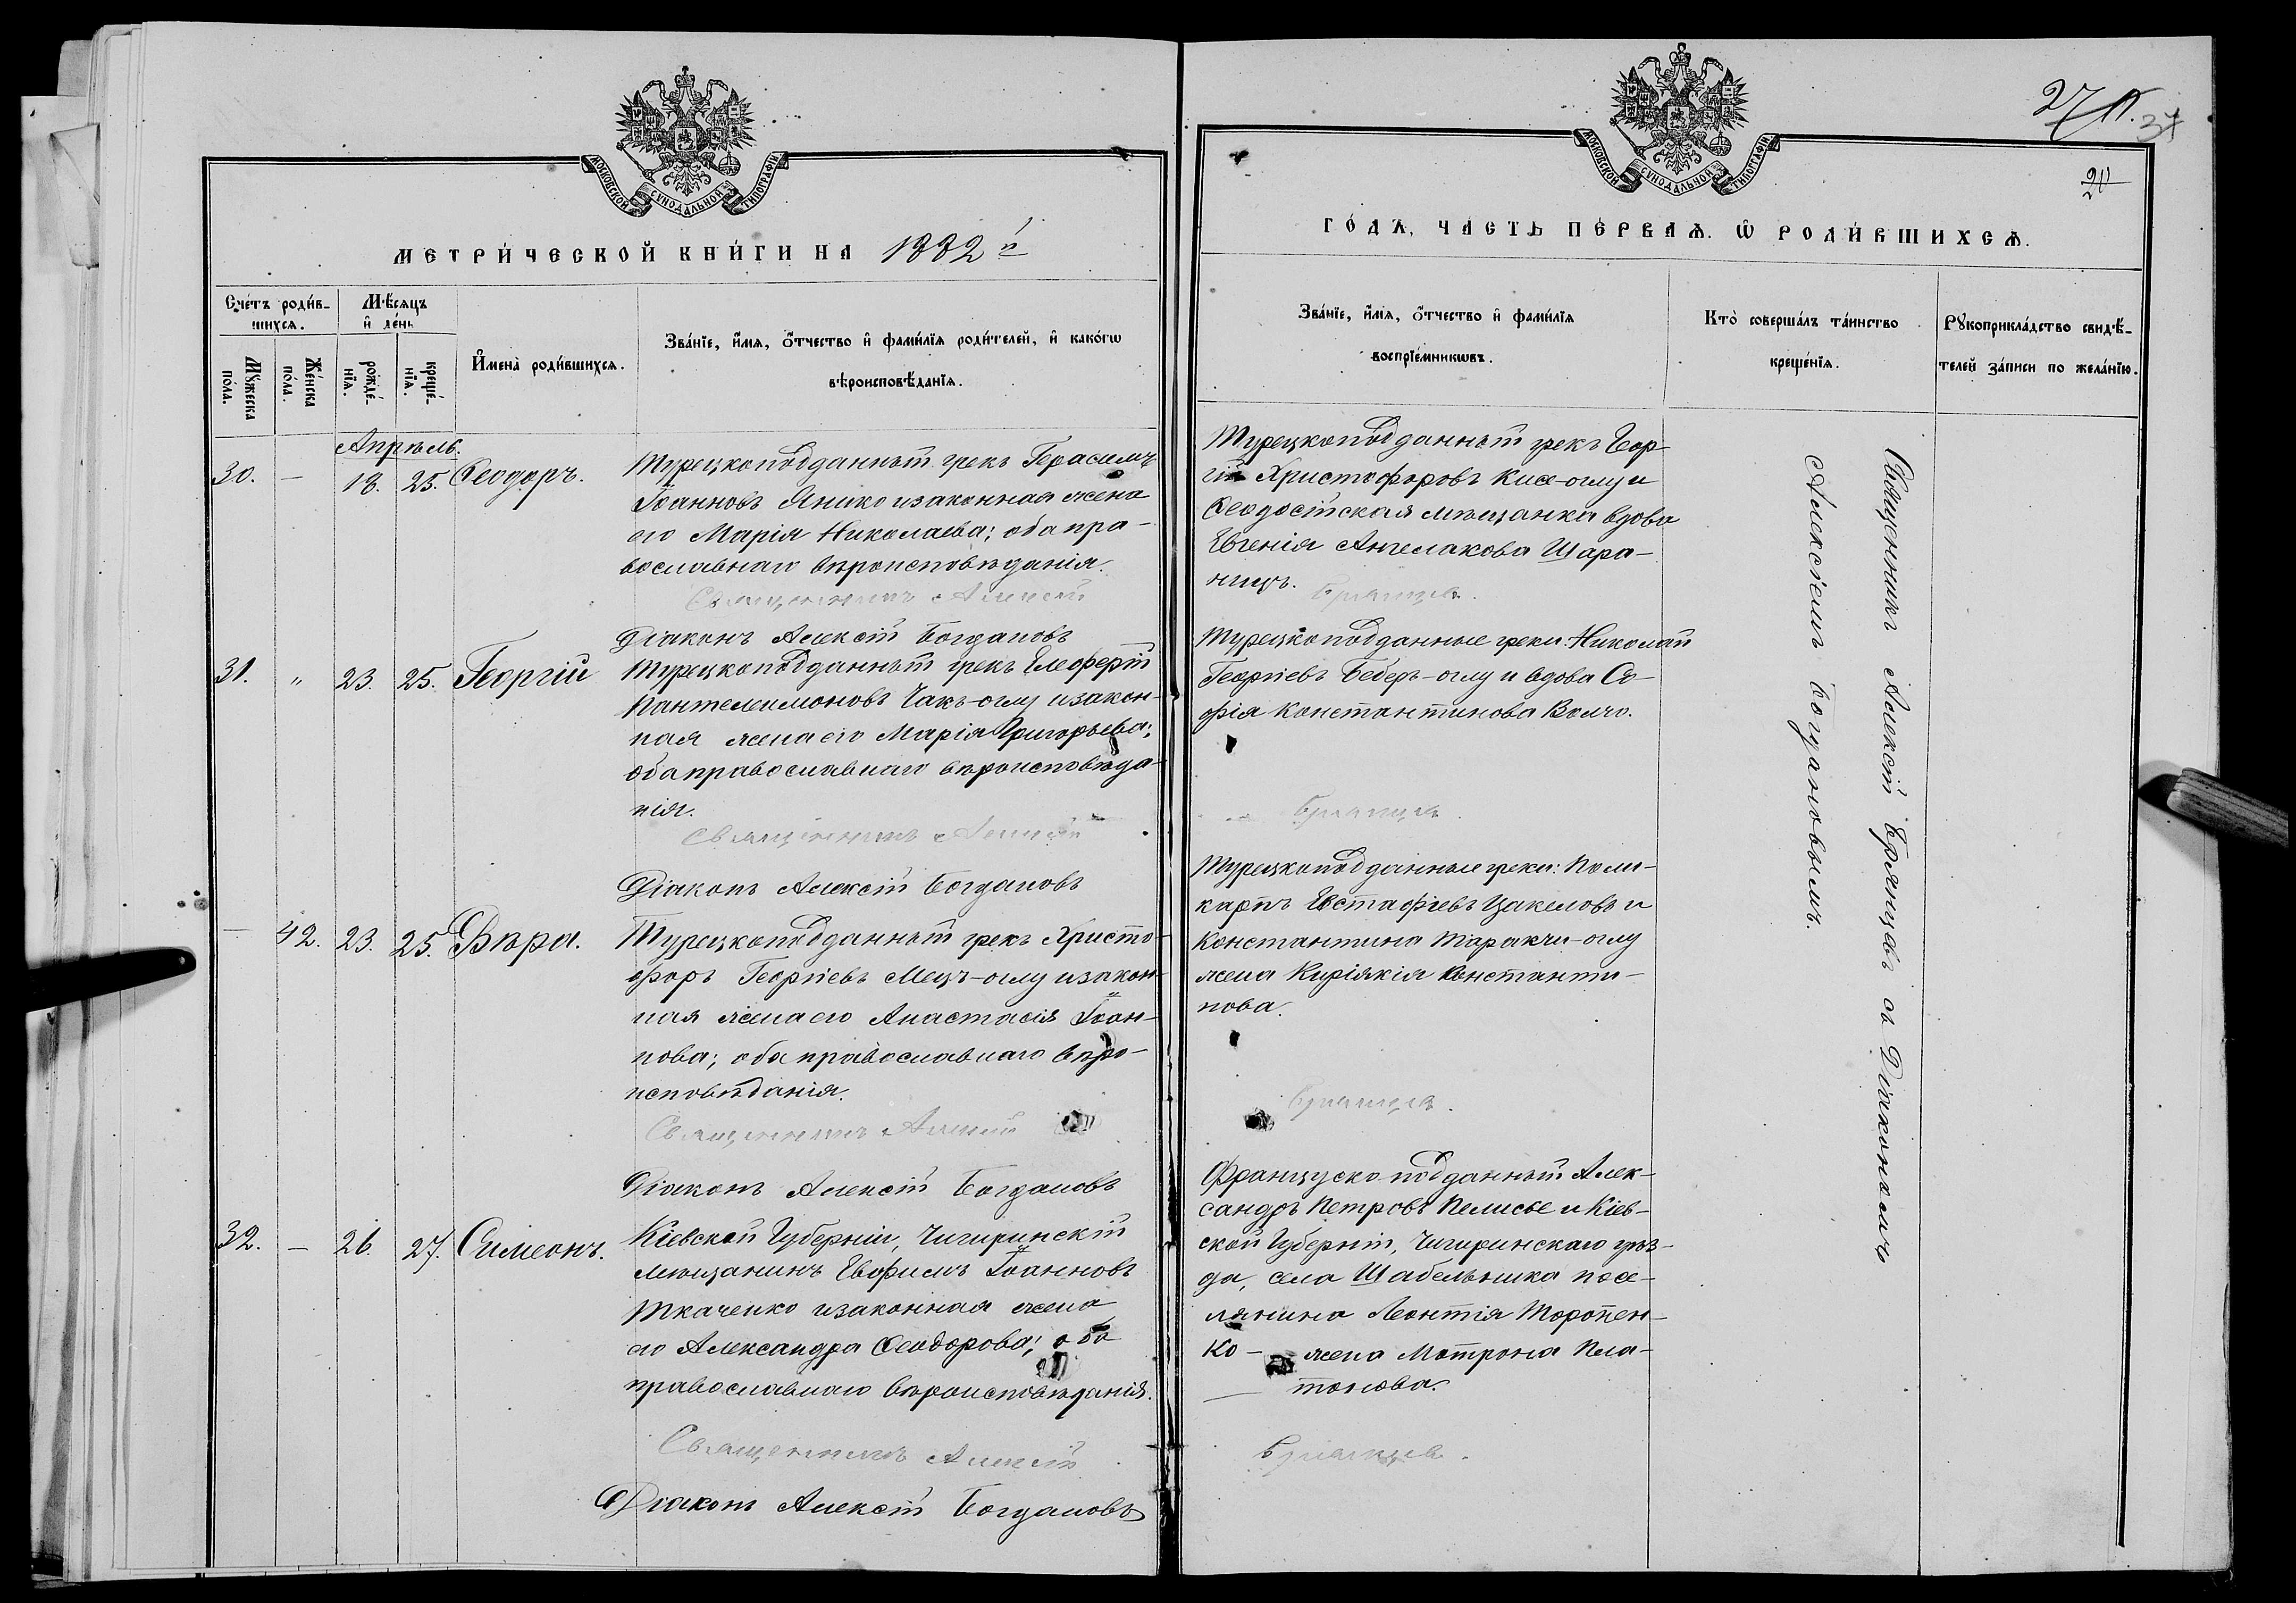 МОСКОВСКОЙ СѴНОДАЛЬНОЙ ТИПОГРАФІИ
МЕТРИ́ЧЕСКОЙ КНИ́ГИ НА 1882 й
Сче́тъ роди́в-
шихсѧ.
Мѣ́сѧцъ
и҆ де́нь
Мꙋ́жеска
по́ла.
Же́нска
по́ла.
рожде́-
нїѧ.
креще́-
нїѧ.
И҆мена̀ роди́вшихсѧ.
Зва́нїе, и҆́мѧ, ѻ҆́тчество и҆ фами́лїѧ роди́телей, и҆ како́гѡ
вѣроисповѣ́данїѧ.
Апрѣль.
30. — 18. 25. Ѳеодоръ.
Турецкоподданный грекъ Герасимъ
Іоанновъ Янико и законная жена
его Марія Николаева; оба пра-
вославнаго вѣроисповѣданія.
Священникъ Алексій
Діаконъ Алексій Богдановъ
31. „ 23. 25. Георгій
Турецкоподданный грекъ Елеферій
Пантелеимоновъ Чакъ-оглу и закон-
ная жена его Марія Григорьева;
оба православнаго вѣроисповѣда-
нія.
Священникъ Алексій
Діаконъ Алексій Богдановъ
— 42. 23. 25. Вѣра.
Турецкоподданный грекъ Христо-
форъ Георгіевъ Мецъ-оглу и закон-
ная жена его Анастасія Іоан-
нова; оба православнаго вѣро-
исповѣданія.
Священникъ Алексій
Діаконъ Алексій Богдановъ
32. — 26. 27. Симеонъ.
Кіевской Губерніи, Чигиринскій
мѣщанинъ Евфимъ Іоанновъ
Ткаченко и законная жена
его Александра Ѳеодорова; оба
православнаго вѣроисповѣданія.
Священникъ Алексій
Діаконъ Алексій Богдановъ
37
МОСКОВСКОЙ СѴНОДАЛЬНОЙ ТИПОГРАФІИ
ГО́ДЪ, ЧАСТЬ ПЕ́РВАѦ. Ѡ҆ РОДИ́ВШИХСѦ.
Зва́нїе, и҆́мѧ, ѻ҆́тчество и҆ фами́лїѧ
воспрїе́мникѡвъ.
Кто̀ соверша́лъ та́инство
креще́нїѧ.
Рꙋкоприкла́дство свидѣ́-
телей за́писи по жела́нїю.
Турецкоподданный грекъ Геор-
гій Христофоровъ Кисе-оглу и
Ѳеодосійская мѣщанка вдова
Евгенія Ангелакова Шара-
ницъ.
Брянцев.
Турецкоподданные греки: Николай
Георгіевъ Беберъ-оглу и вдова Со-
фія Константинова Волчо.
Брянцев.
Турецкоподданные греки: Поли-
карпъ Евстафіевъ Цакеловъ и
Константина Таракчи-оглу
жена Киріякія Константи-
нова.
Брянцев.
Французско-подданный Алек-
сандръ Петровъ Пелисье и Кіев-
ской Губерніи, Чигиринскаго уѣз-
да, села Шабельника посе-
лянина Леонтія Торопен-
ко — жена Матрона Пла-
тонова.
Брянцев.
Священникъ Алексій Брянцевъ съ Діакономъ
Алексіемъ Богдановымъ.